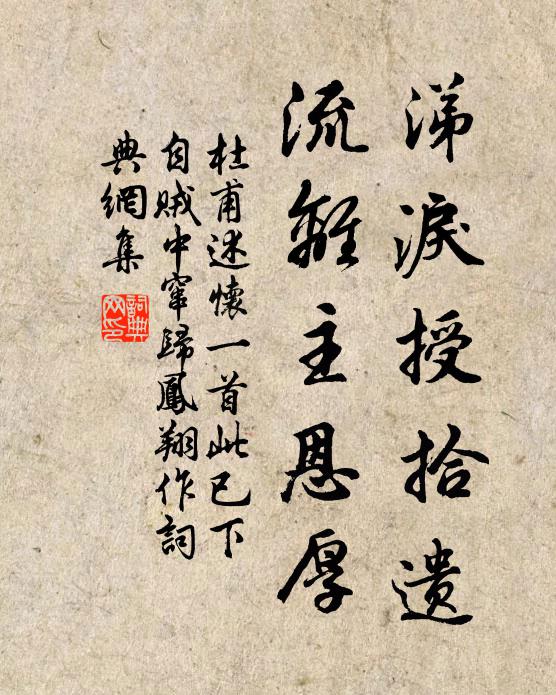 涕淚授拾遺
流離主恩厚
杜甫述懷一首此已下
自賊中窜歸鳳翔作詞
典網集
詞典
网印